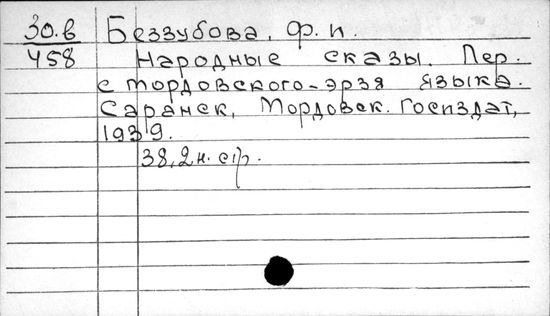 30.в Беззубова, Ф. и.
458 Народные сказы. Пер.
с мордовского-эрзя языка.
Саранск, Мордовск. Госиздат,
1939.
38,2н. стр.